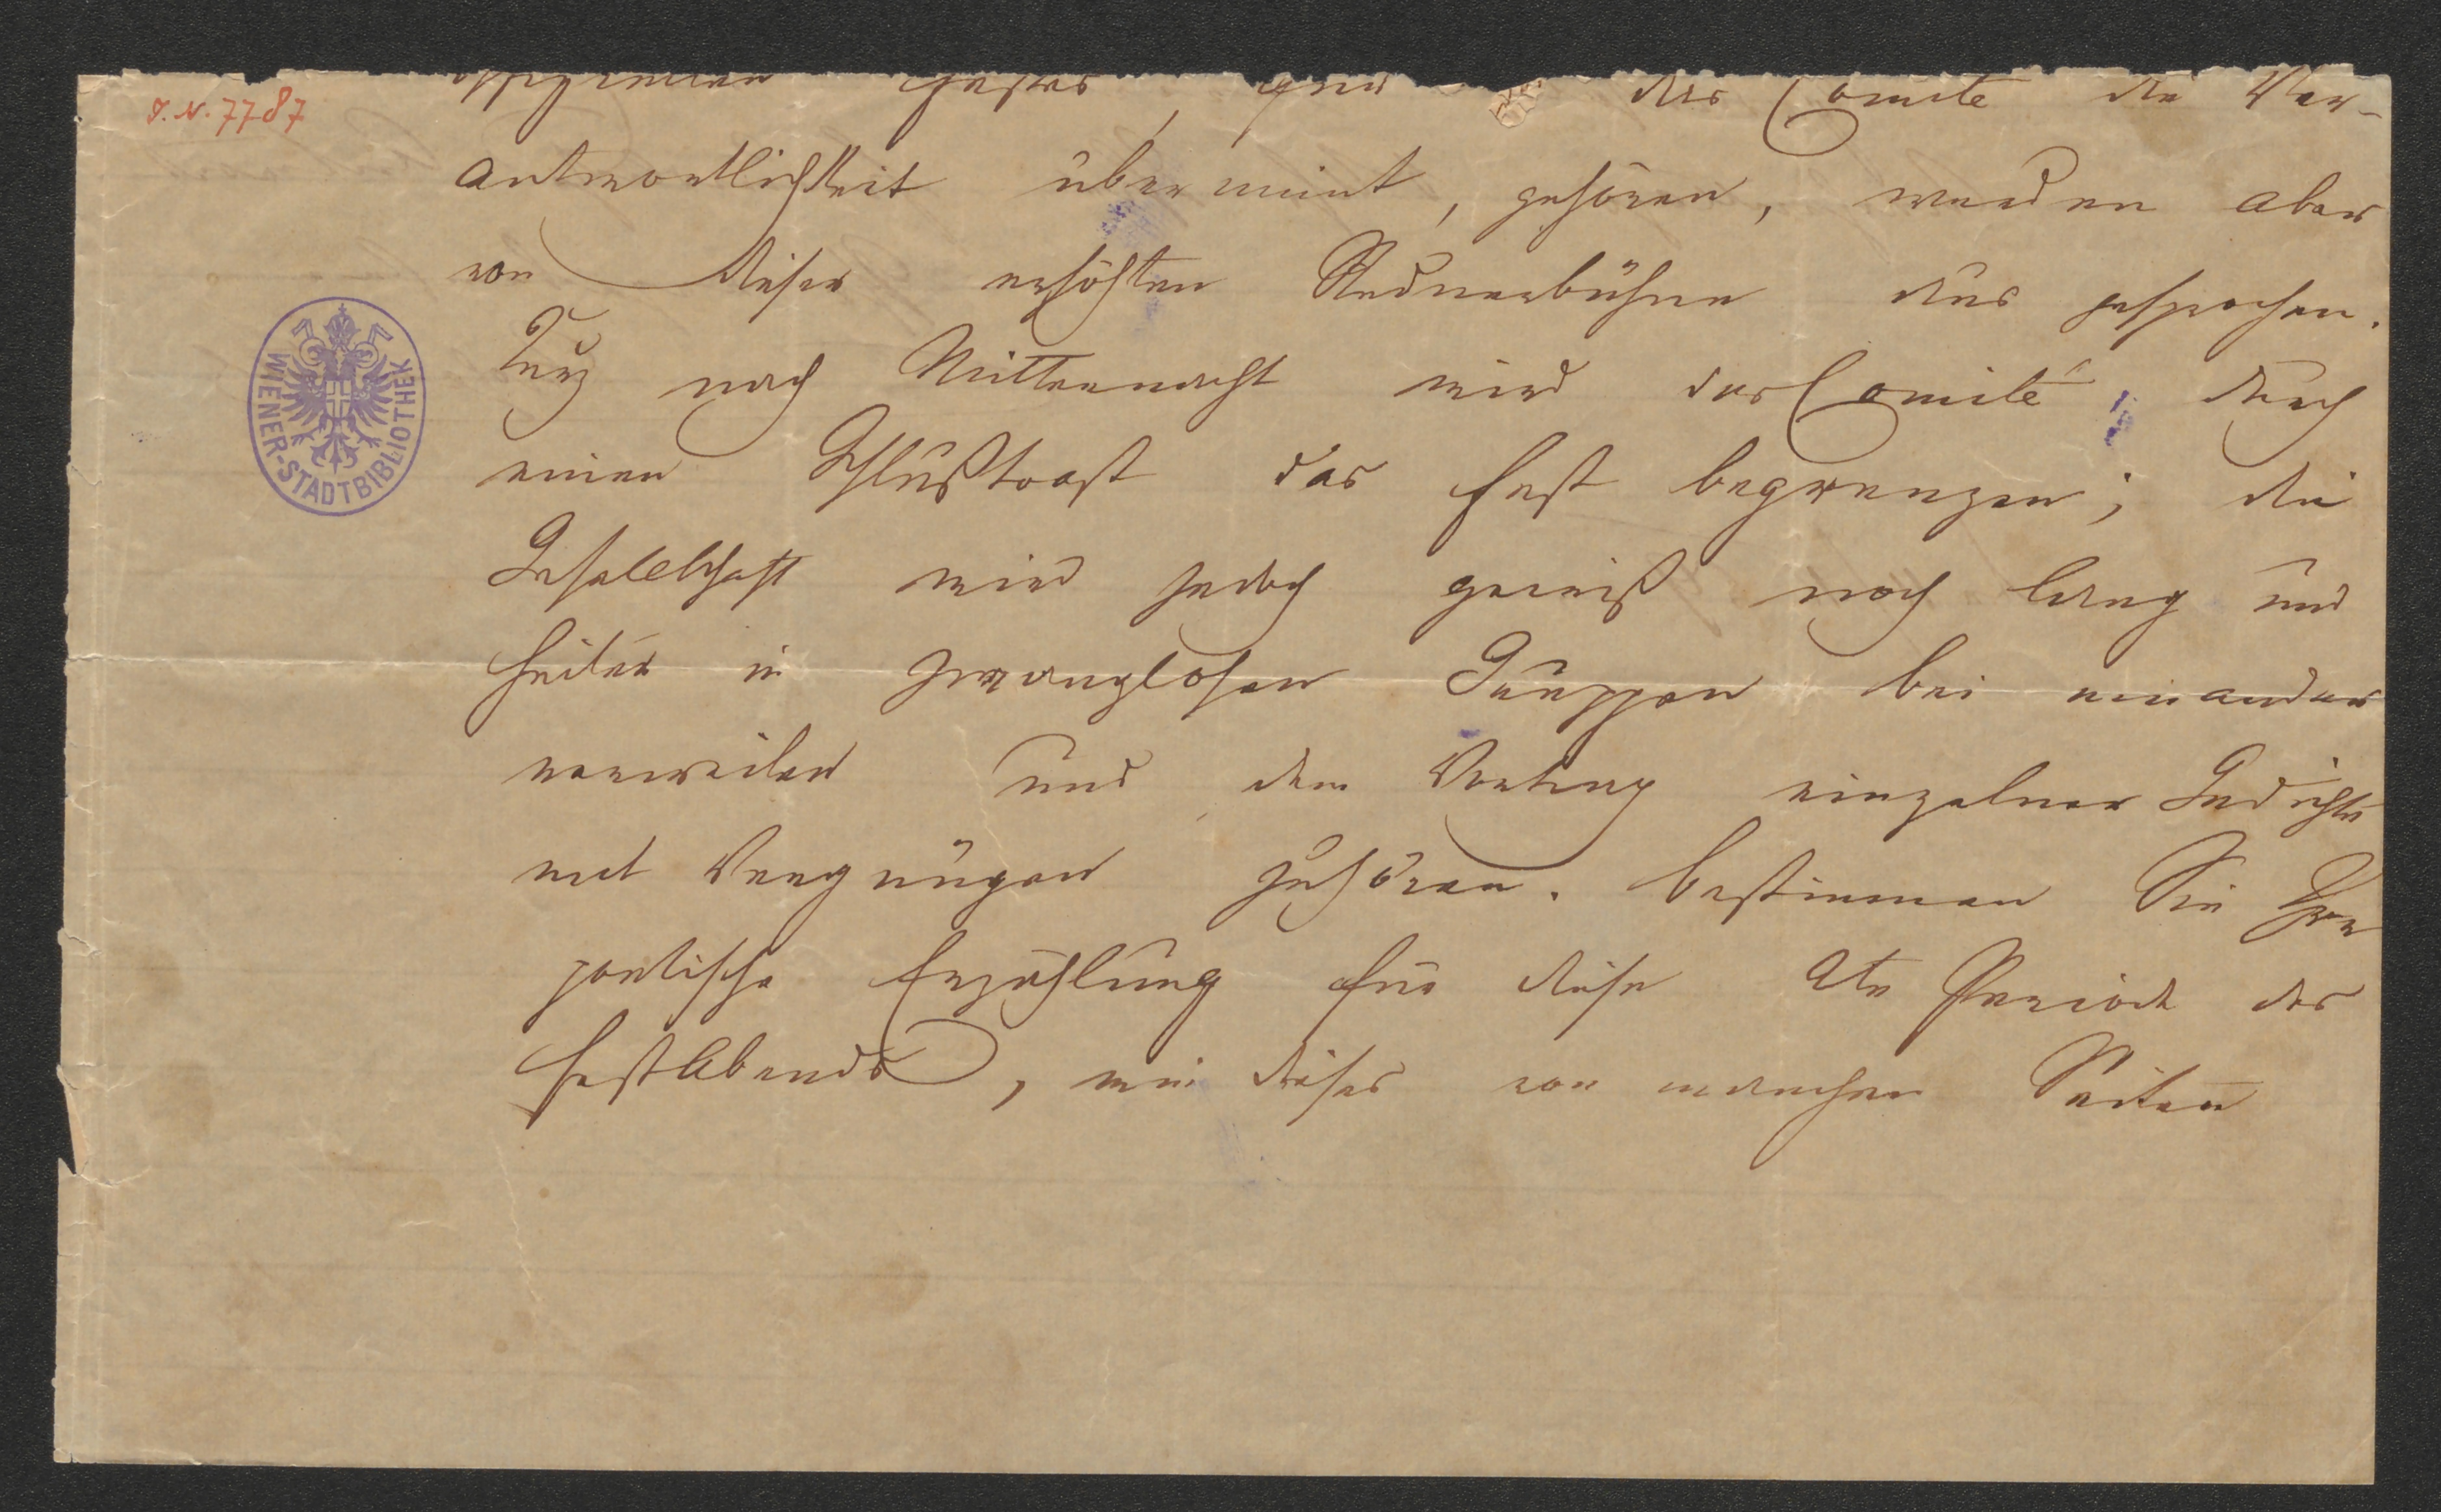 I.N. 7787
offiziellen Festes, das Comité die Ver-
antwortlichkeit übernimt, gehören, werden aber
von dieser erhöhten Rednerbühne aus gesprochen.
Kurz nach Mitternacht wird das Comité durch
einen Schlußtoast das Fest begrenzen; die
Gesellschaft wird jedoch gewiß noch lang und
heiter in zwanglosen Gruppen bei einander
verweilen und dem Vortrag einzelner Gedichte
mit Vergnügen zuhören. Bestimmen Sie Ihre
poetische Erzählung für diese 2te Periode des
Festabends, wie dieses von manchen Seiten
WIENER-STADTBIBLIOTHEK